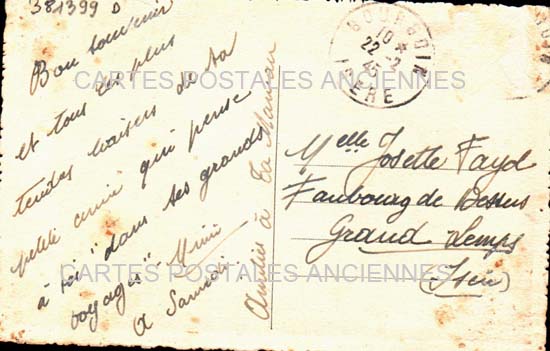 381399 D
Bon souvenir
et tous les plus
tendres baisers de ta
petite amie qui pense
à toi "dans ses grands
voyages" - Mimi
A Samedi.
Amitiés à ta Maman
BOURGOIN
10 *
22 -2
45
ISERE
Melle Josette Fayd
Faubourg de Dessus
Grand Lemps
(Isère)
CARTES POSTALES ANCIENNES
CARTES POSTALES ANCIENNES